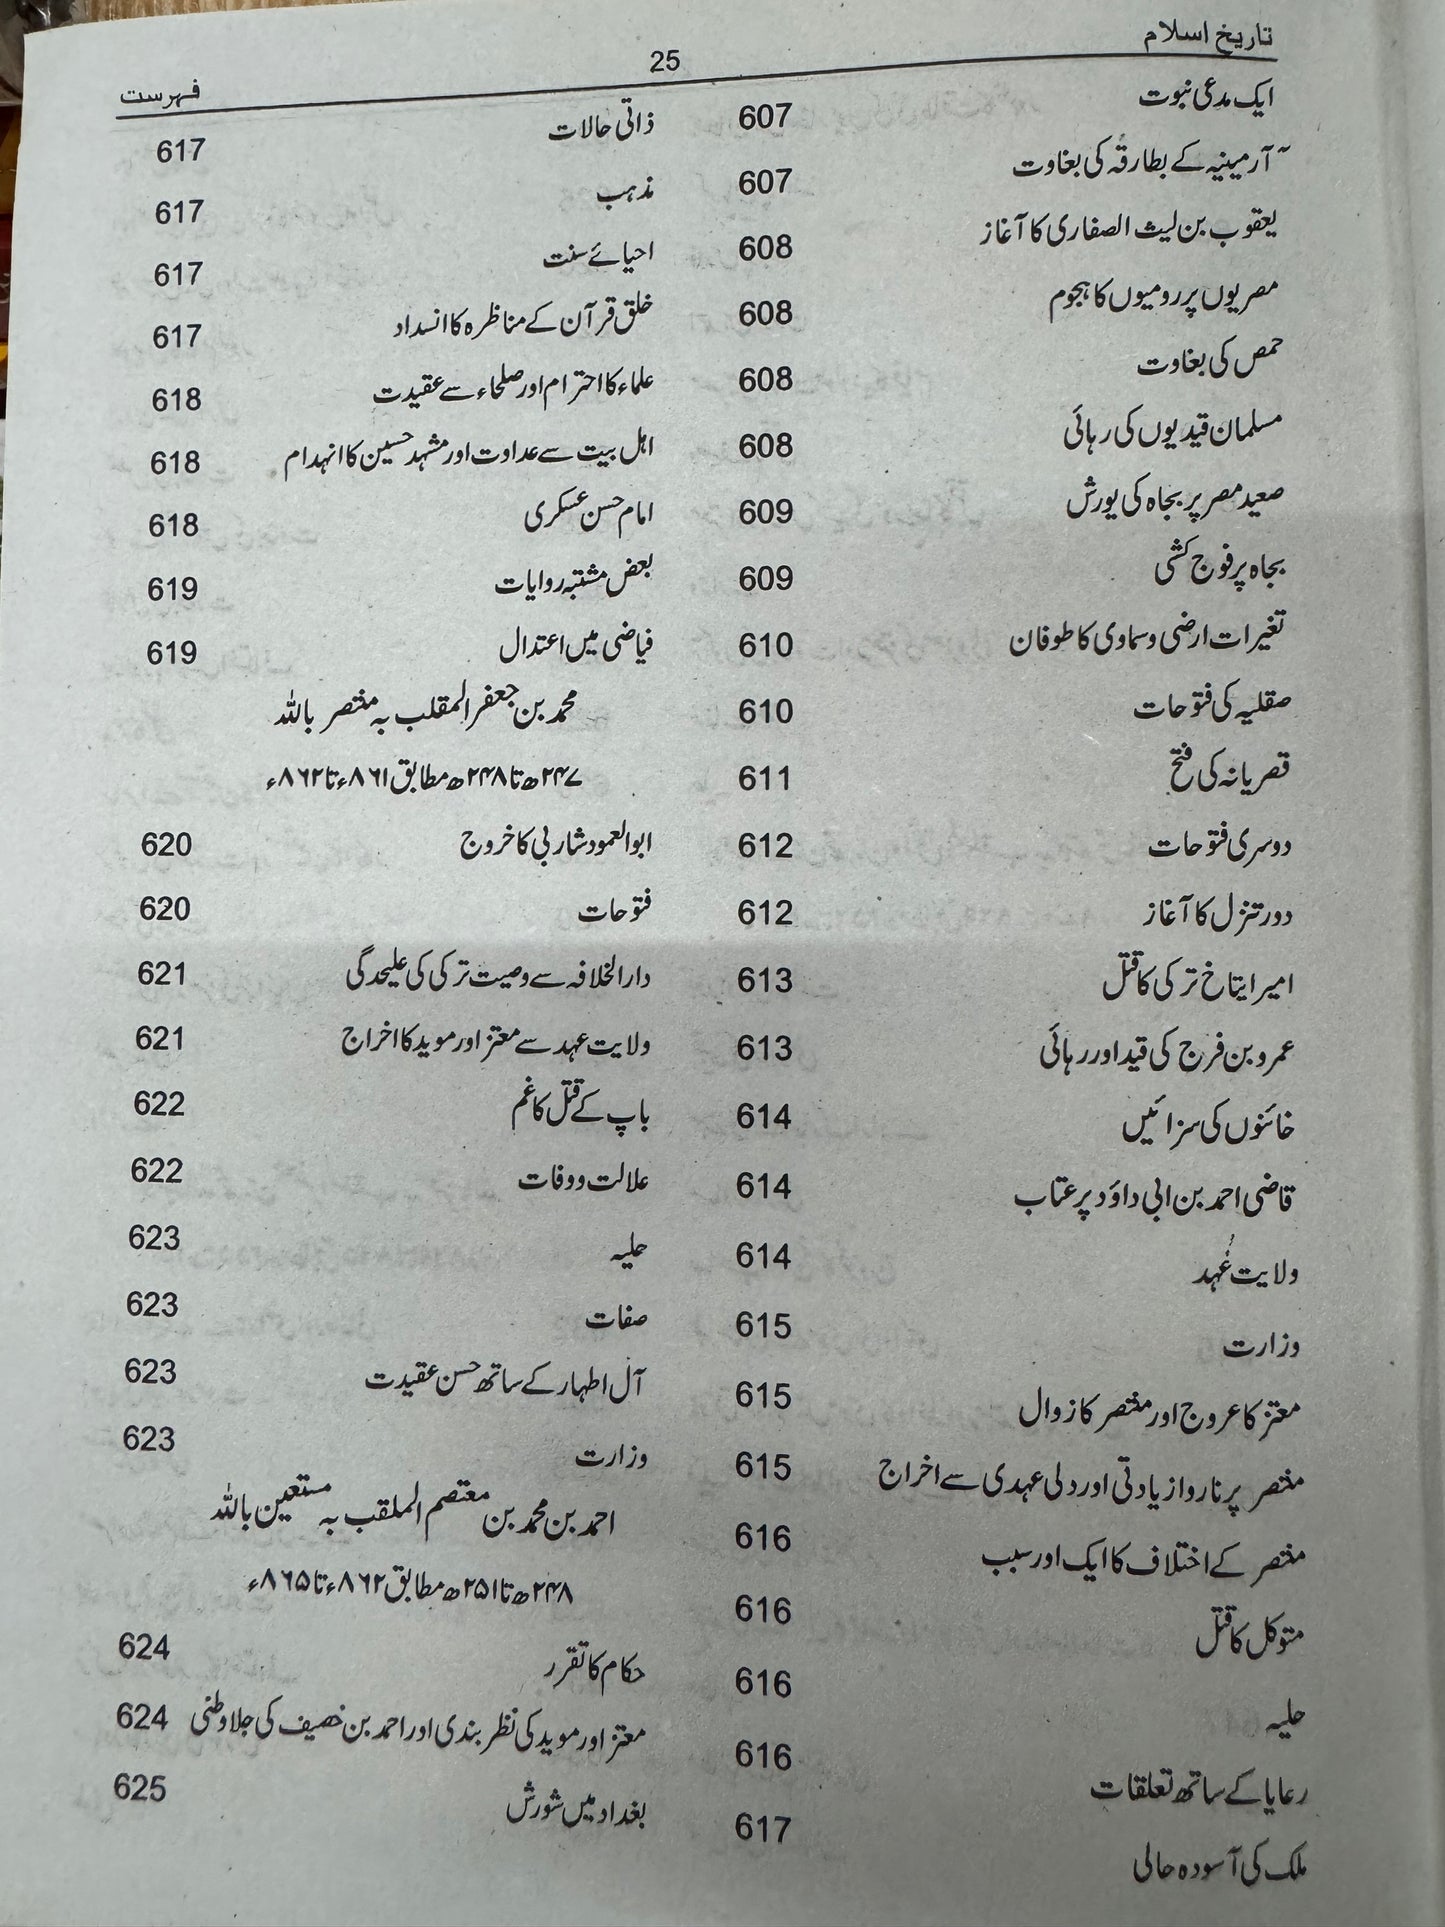 تاریخ اسلام
25
فہرست
ایک مدعی نبوت 607
آرمینیہ کے بطارقہ کی بغاوت 607
یعقوب بن لیث الصفاری کا آغاز 608
مصریوں پر رومیوں کا ہجوم 608
حمص کی بغاوت 608
مسلمان قیدیوں کی رہائی 608
صعید مصر پر بجاہ کی یورش 609
بجاہ پر فوج کشی 609
تغیرات ارضی و سماوی کا طوفان 610
صقلیہ کی فتوحات 610
قصریانہ کی فتح 611
دوسری فتوحات 612
دور تنزل کا آغاز 612
امیر ایتاخ ترکی کا قتل 613
عمرو بن فرج کی قید اور رہائی 613
خائنوں کی سزائیں 614
قاضی احمد بن ابی داؤد پر عتاب 614
ولایت عہد 614
وزارت 615
معتز کا عروج اور منتصر کا زوال 615
منتصر پر ناروا زیادتی اور دلی عہدی سے اخراج 615
منتصر کے اختلاف کا ایک اور سبب 616
متوکل کا قتل 616
حلیہ 616
رعایا کے ساتھ تعلقات 616
ملک کی آسودہ حالی 617
ذاتی حالات 617
مذہب 617
احیائے سنت 617
خلق قرآن کے مناظرہ کا انسداد 617
علماء کا احترام اور صلحاء سے عقیدت 618
اہل بیت سے عداوت اور مشہد حسین کا انہدام 618
امام حسن عسکری 618
بعض مشتبہ روایات 619
فیاضی میں اعتدال 619
محمد بن جعفر المقلب بہ منتصر باللہ
۲۴۷ھ تا ۲۴۸ھ مطابق ۸۶۱ء تا ۸۶۲ء
ابوالعمود شاربی کا خروج 620
فتوحات 620
دارالخلافہ سے وصیت ترکی کی علیحدگی 621
ولایت عہد سے معتز اور موید کا اخراج 621
باپ کے قتل کا غم 622
علالت و وفات 622
حلیہ 623
صفات 623
آل اطہار کے ساتھ حسن عقیدت 623
وزارت 623
احمد بن محمد بن معتصم الملقب بہ مستعین باللہ
۲۴۸ھ تا ۲۵۱ھ مطابق ۸۶۲ء تا ۸۶۵ء
حکام کا تقرر 624
معتز اور موید کی نظر بندی اور احمد بن خصیف کی جلاوطنی 624
بغداد میں شورش 625